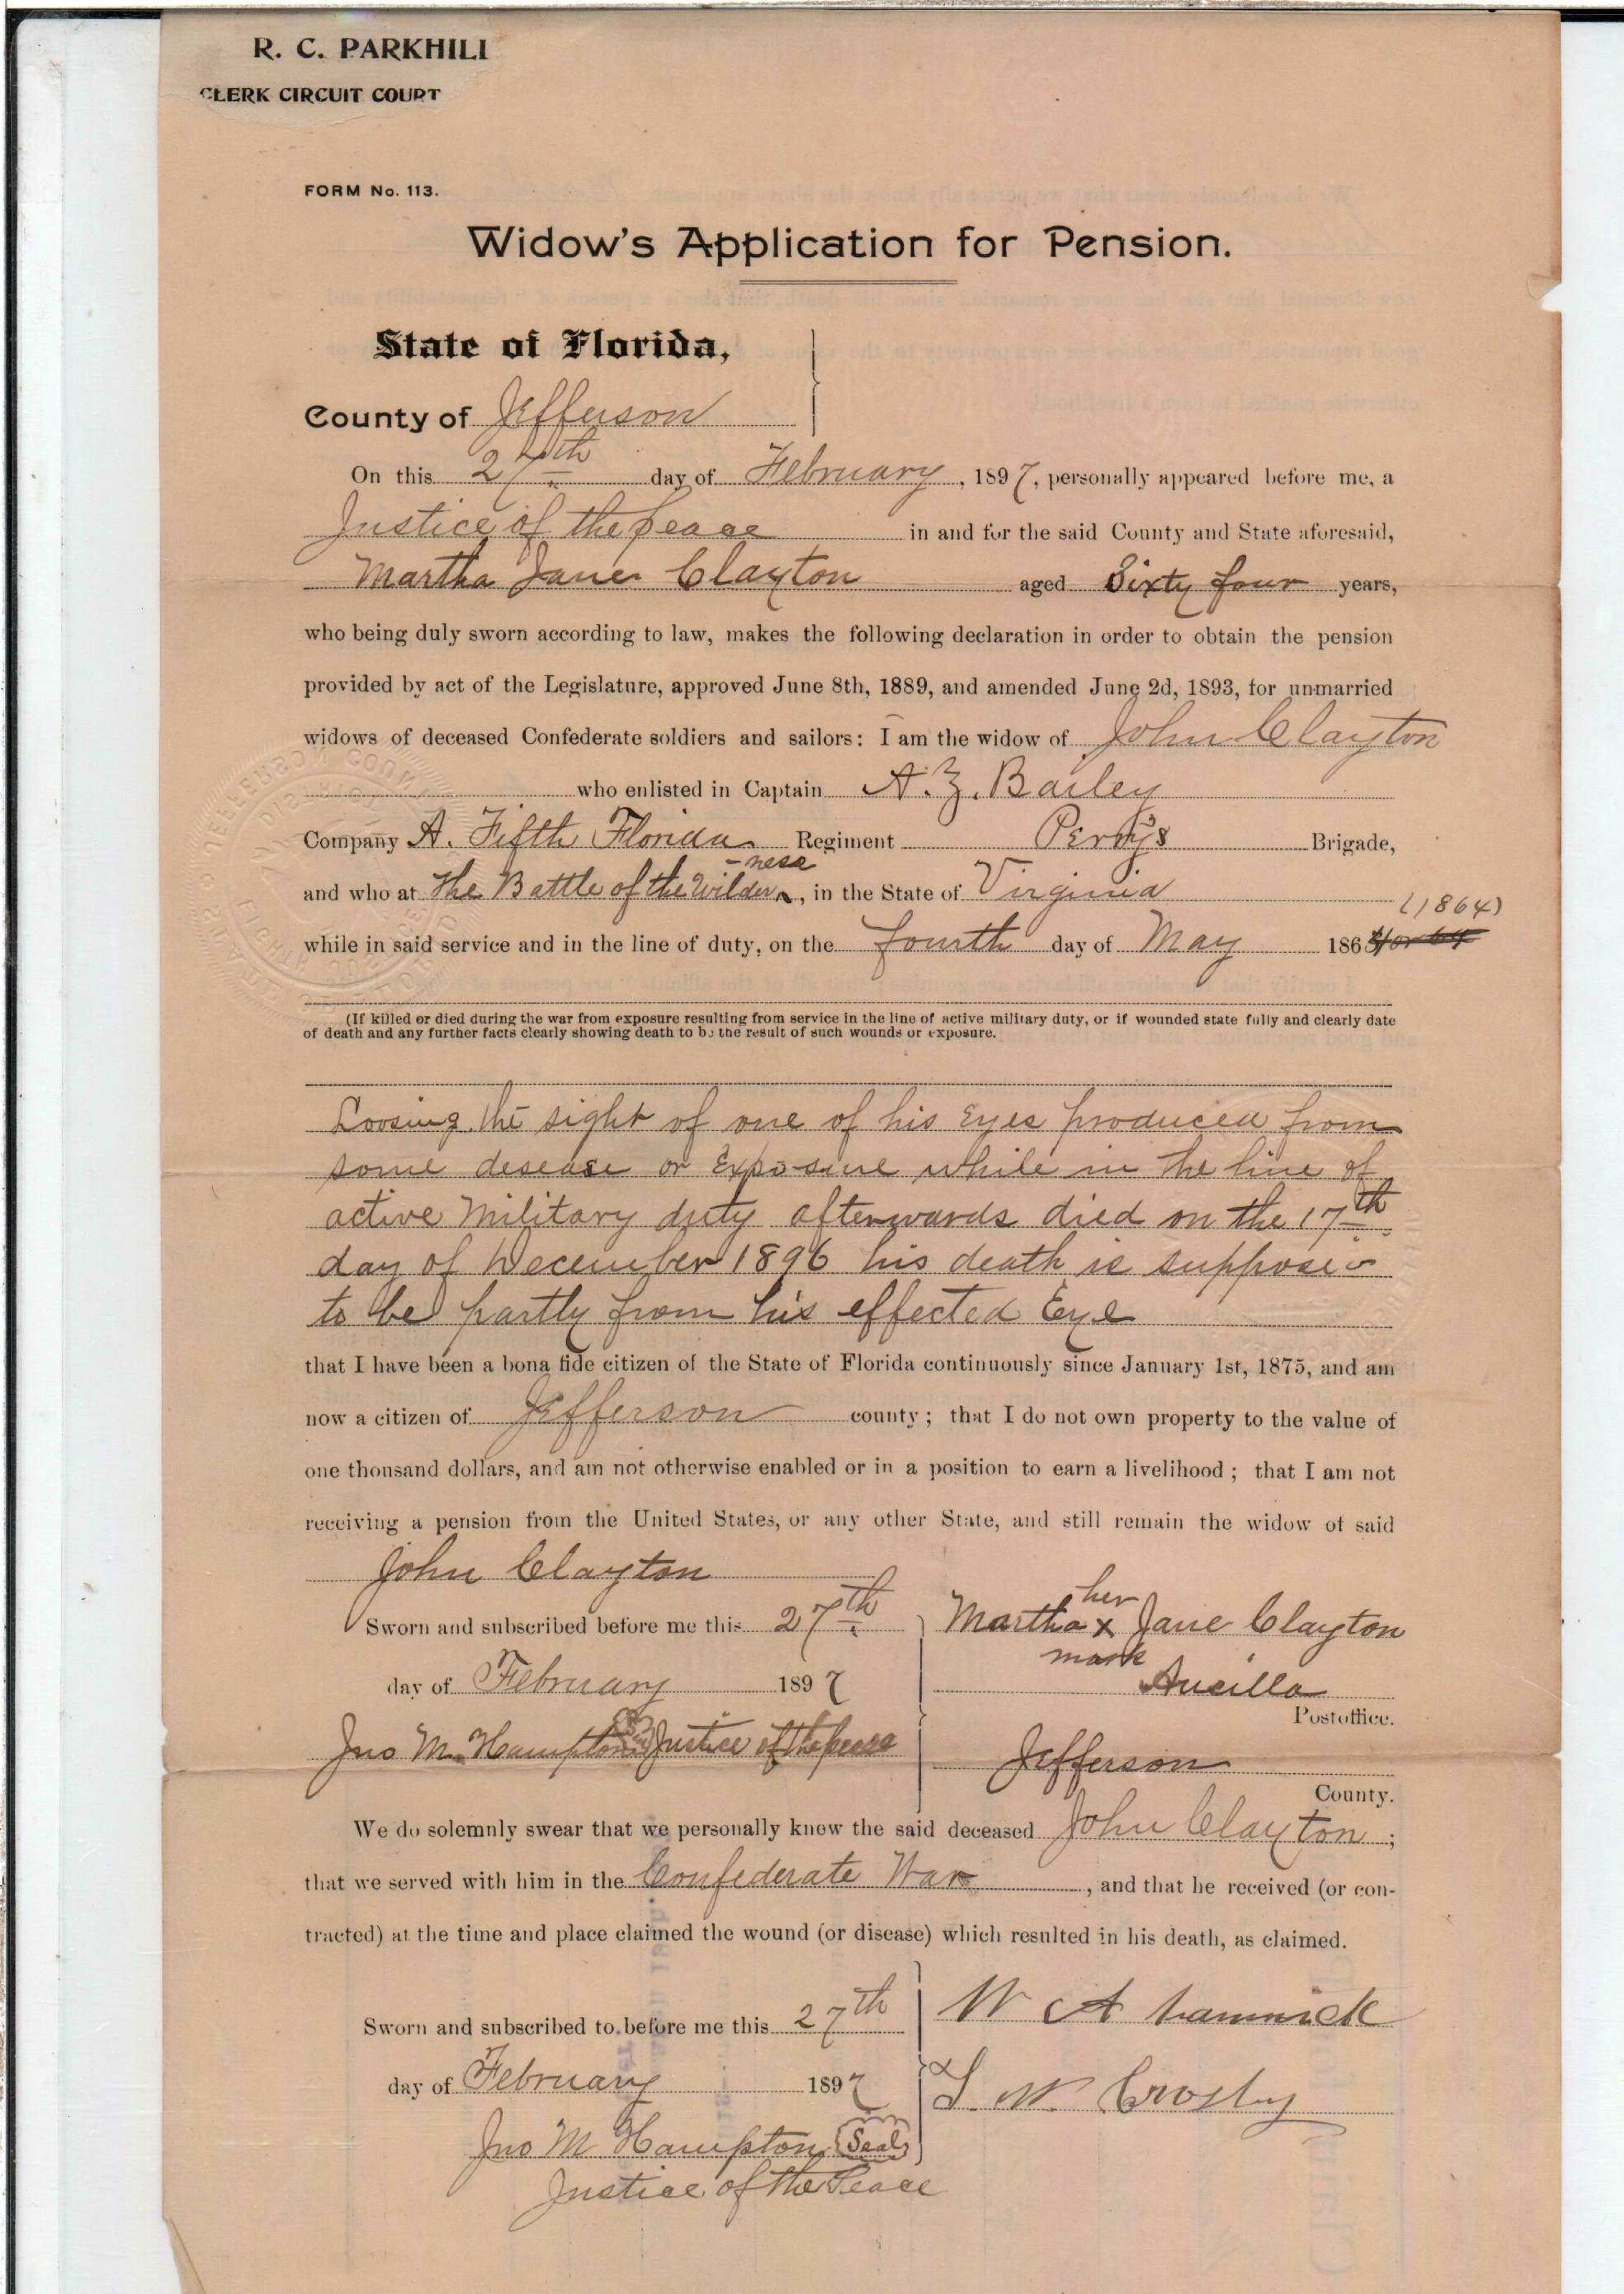 R. C. PARKHILL
CLERK CIRCUIT COURT
FORM No. 113.
Widow's Application for Pension.
State of Florida,
County of Jefferson
On this 27th day of February, 1897, personally appeared before me, a
Justice of the peace in and for the said County and State aforesaid,
Martha Jane Clayton aged Sixty four years,
who being duly sworn according to law, makes the following declaration in order to obtain the pension
provided by act of the Legislature, approved June 8th, 1889, and amended June 2d, 1893, for unmarried
widows of deceased Confederate soldiers and sailors: I am the widow of John Clayton
who enlisted in Captain A. Z. Bailey
Company A. Fifth Florida Regiment Perry's Brigade,
and who at the Battle of the Wilder-ness, in the State of Virginia
(1864)
while in said service and in the line of duty, on the fourth day of May 186
(If killed or died during the war from exposure resulting from service in the line of active military duty, or if wounded state fully and clearly date
of death and any further facts clearly showing death to be the result of such wounds or exposure.
Loosing the sight of one of his Eyes produced from
some desease or Exposure while in the line of
active Military duty afterwards died on the 17th
day of December 1896 his death is suppose
to be partly from his effected Eye
that I have been a bona fide citizen of the State of Florida continuously since January 1st, 1875, and am
now a citizen of Jefferson county; that I do not own property to the value of
one thousand dollars, and am not otherwise enabled or in a position to earn a livelihood; that I am not
receiving a pension from the United States, or any other State, and still remain the widow of said
John Clayton
Sworn and subscribed before me this 27th
day of February 1897
Jno M. Hampton Justice of the peace
her
Martha x Jane Clayton
mark
Aucilla
Postoffice.
Jefferson
County.
We do solemnly swear that we personally knew the said deceased John Clayton;
that we served with him in the Confederate War, and that he received (or con-
tracted) at the time and place claimed the wound (or disease) which resulted in his death, as claimed.
Sworn and subscribed to before me this 27th
day of February 1897
Jno M Hampton Seal
Justice of the Peace
W A
W. Crosby